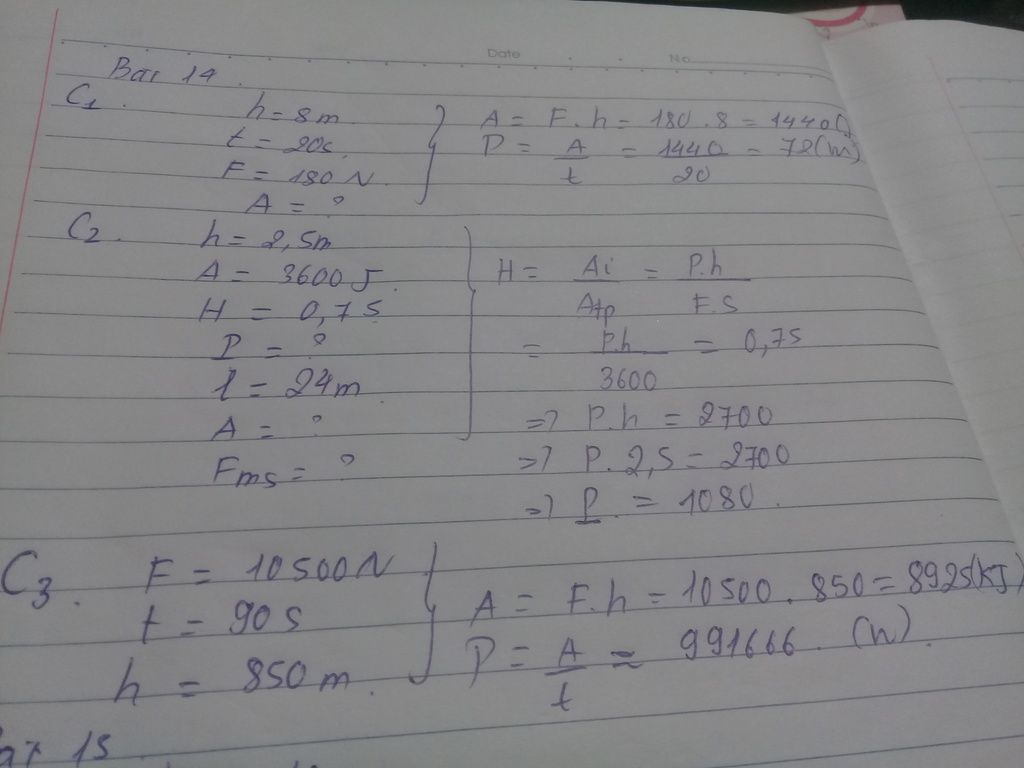 Date No
Bài 14
C1. h = 8m
t = 20s.
F = 180 N.
A = ?
A = F.h = 180 . 8 = 1440(J)
P = A/t = 1440/20 = 72(W)
C2. h = 2,5m
A = 3600 J.
H = 0,75
P = ?
l = 24m
A = ?
Fms = ?
H = Ai/Atp = P.h/F.S
= P.h/3600 = 0,75
=> P.h = 2700
=> P. 2,5 = 2700
=> P. = 1080.
C3. F = 10500N
t = 90s
h = 850m.
A = F.h = 10500 . 850 = 8925(KJ)
P = A/t ≈ 991666. (W).
Bài 15